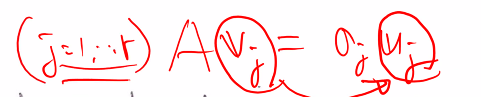 (j=1,..,r) A v_j = σ_j u_j